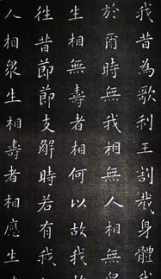 我昔為歌利王割截身體
於爾時無我相無人相無
生相無壽者相何以故我
往昔節節支解時若有我
人相眾生相壽者相應生